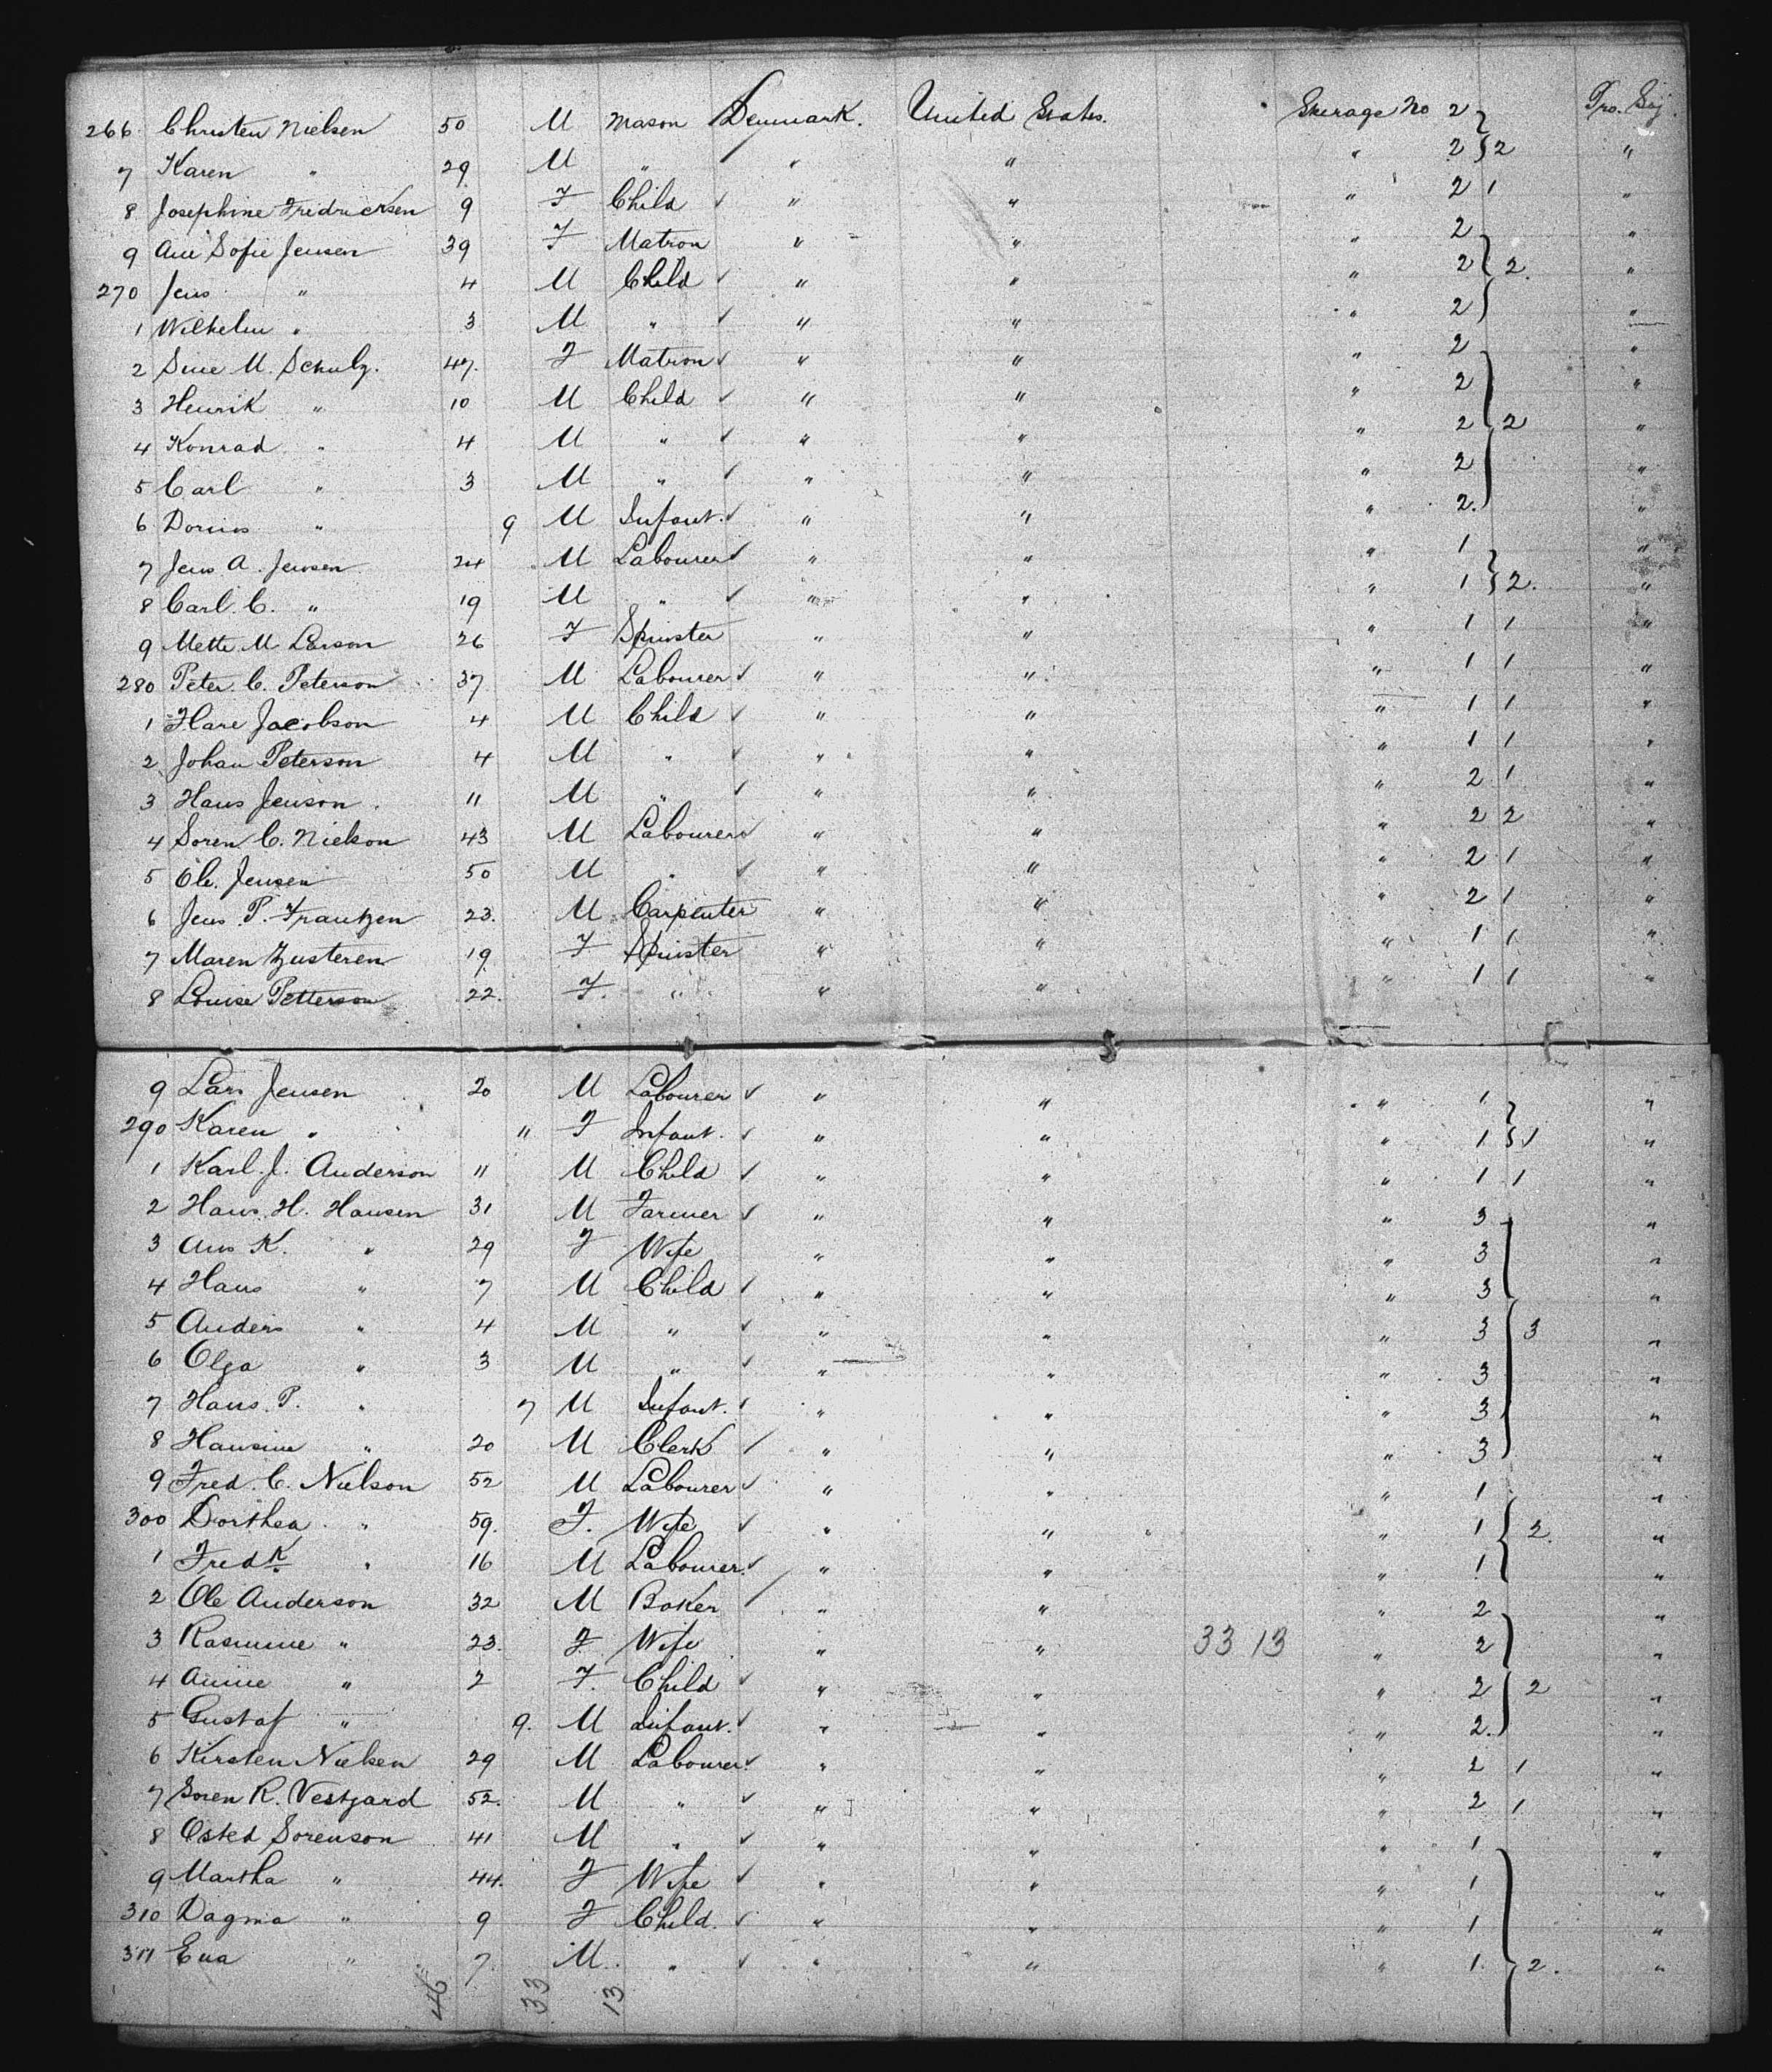 266 Christen Nielsen 50 M Mason Denmark. United States. Steerage No 2 Pro. Soj.
7 Karen " 29 M " " " " 2 2 "
8 Josephine Fredricksen 9 F Child " " " 2 1 "
9 Ane Sofie Jensen 39 F Matron " " " 2 "
270 Jens " 4 M Child " " " 2 2. "
1 Wilhelm " 3 M " " " " 2 "
2 Sine M. Schulz. 47. F Matron " " " 2 "
3 Henrik " 10 M Child " " " 2 "
4 Konrad " 4 M " " " " 2 2 "
5 Carl " 3 M " " " " 2 "
6 " 9 M Infant. " " " 2. "
7 Jens A. Jensen 24 M Labourer " " " 1 "
8 Carl C. " 19 M " " " " 1 2. "
9 Mette M Larson 26 F Spinster " " " 1 1 "
280 Peter C. Peterson 37 M Labourer " " " 1 1 "
1 Jacobson 4 M Child " " " 1 1 "
2 Johan Peterson 4 M " " " " 1 1 "
3 Hans Jenson 11 M " " " " 2 1 "
4 Soren C. Nielson 43 M Labourer " " " 2 2 "
5 Ole Jensen 50 M " " " " 2 1 "
6 Jens P. Frantzen 23. M Carpenter " " " 2 1 "
7 Maren 19 F Spinster " " " 1 1 "
8 Louise Petterson 22. F. " " " " 1 1 "
9 Lars Jensen 20 M Labourer " " " 1 "
290 Karen " " F Infant. " " " 1 1 "
1 Karl. J. Anderson 11 M Child " " " 1 1 "
2 Hans. H. Hansen 31 M Farmer " " " 3 "
3 Ans K. " 29 F Wife " " " 3 "
4 Hans " 7 M Child " " " 3 "
5 Anders " 4 M " " " " 3 3 "
6 Olga " 3 M " " " " 3 "
7 Hans. P. " 7 M Infant. " " " 3 "
8 Hansine " 20 M Clerk " " " 3 "
9 Fred. C. Nielson 52 M Labourer " " " 1 "
300 Dorthea " 59. F. Wife " " " 1 2. "
1 Fredk. " 16 M Labourer. " " " 1 "
2 Ole Anderson 32 M Baker " " " 2 "
3 Rasmine " 23. F Wife " " 33 13 " 2 "
4 Annie " 2 F. Child " " " 2 2 "
5 Gustaf " 9. M Infant. " " " 2. "
6 Kirsten Nielsen 29 M Labourer. " " " 2 1 "
7 Soren R. Vestgard 52. M " " " " 2 1 "
8 Osted Sorenson 41 M " " " " 1 "
9 Martha " 44. F Wife " " " 1 "
310 Dagma " 9 F Child. " " " 1 "
311 Ena " 7. M. " " " " 1. 2. "
46 33 13